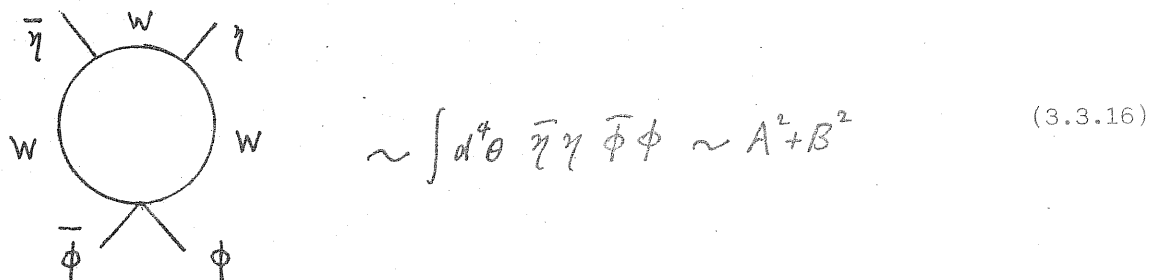 η̄ W η
W W
∼ ∫ d⁴θ η̄ η φ̄ φ ∼ A² + B² (3.3.16)
φ̄ φ